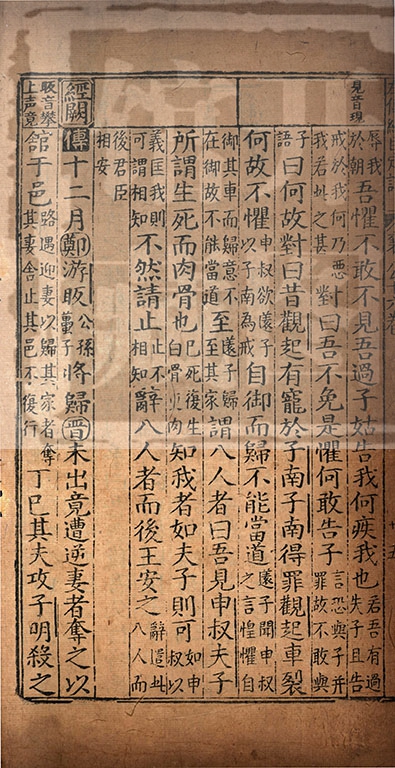 見音現
辱我於朝吾懼不敢不見吾過子姑告我何疾我也君吾有過失子且告
戒於我何乃惡我若此之甚對曰吾不免是懼何敢告子言恐與子并罪故不敢與
子語曰何故對曰昔觀起有寵於子南子南得罪觀起車裂
何故不懼申叔欲薳子以子南為戒自御而歸不能當道薳子聞申叔之言惶懼自
御其車而歸意不在御故不能當道至薳子歸至其家謂八人者曰吾見申叔夫子
所謂生死而肉骨也已死復生白骨更肉知我者如夫子則可如申叔以
義匡我則可謂相知不然請止止不相知辭八人者而後王安之辭遣此八人而
後君臣相安
眅音攀上声竟
經闕傳十二月鄭游眅公孫蠆子將歸晉未出竟遭逆妻者奪之以
館于邑路遇迎妻以歸其家者奪其妻舍止其邑不復行丁巳其夫攻子明殺之